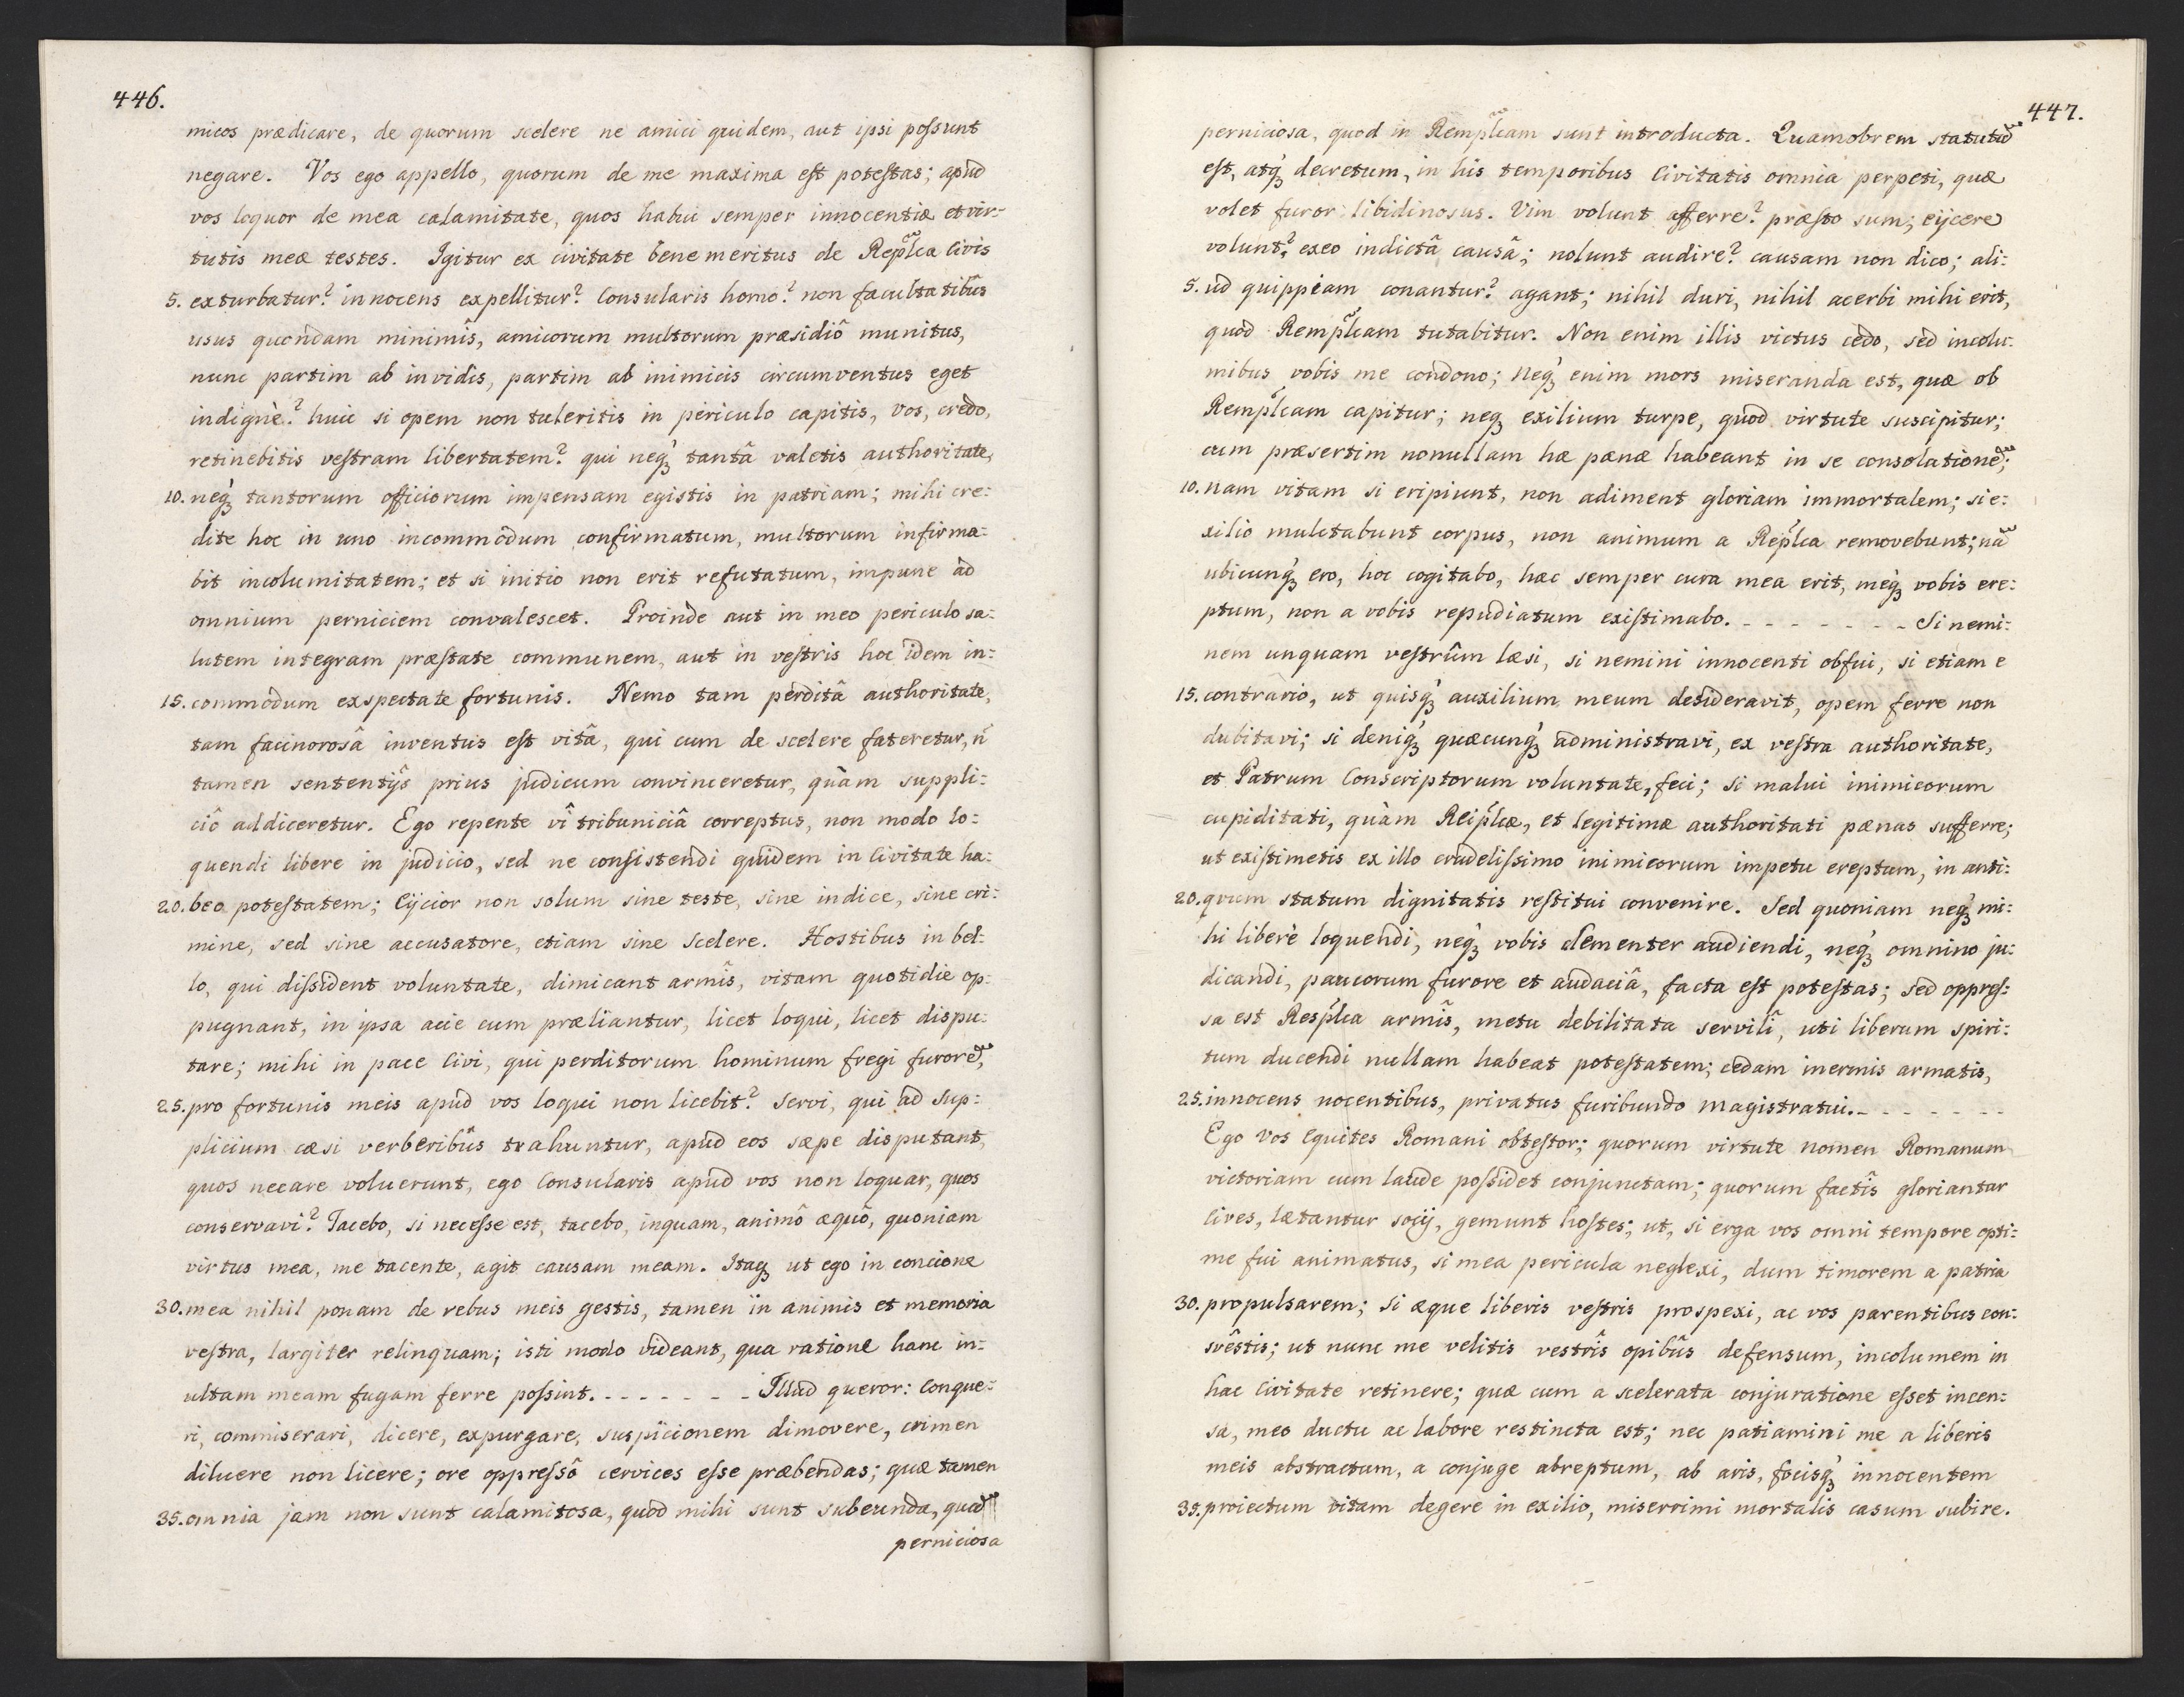 446.
micos prædicare, de quorum scelere ne amici quidem, aut ipsi poſsunt
negare. Vos ego appello, quorum de me maxima eſt poteſtas; apud
vos loquor de mea calamitate, quos habui semper innocentiæ et vir=
tutis meæ testes. Igitur ex civitate bene meritus de Replca Civis
5. exturbatur? innocens expellitur? Consularis homo? non facultatibûs
usus quondam minimîs, amicorum multorum præsidiô munitus,
nunc partim ab invidis, partim ab inimicis circumventus eget
indignè? huic si opem non tuleritis in periculo capitis, vos, credo,
retinebitis veſtram libertatem? qui neq́ꝫ tantâ valetis authoritate,
10. neq́ꝫ tantorum officiorum impensam egistis in patriam; mihi cre=
dite hoc in uno incommodum confirmatum, multorum infirma=
bit incolumitatem; et si initio non erit refutatum, impune ad
omnium perniciem convalescet. Proinde aut in meo periculo sa=
lutem integram præstate communem, aut in veſtris hoc idem in=
15. commodum exspectate fortunis. Nemo tam perditâ authoritate,
tam facinorosâ inventus eſt vitâ, qui cum de scelere fateretur, ñ
tamen sententijs prius judicum convinceretur, quàm suppli=
ciô addiceretur. Ego repente vî tribuniciâ correptus, non modo lo=
quendi libere in judicio, sed ne conſistendi quidem in Civitate ha=
20. beo poteſtatem; Eijcior non solum sine teste, sine indice, sine cri=
mine, sed sine accusatore, etiam sine scelere. Hostibus in bel=
lo, qui diſsident voluntate, dimicant armîs, vitam quotidie op=
pugnant, in ipsa acie cum præliantur, licet loqui, licet dispu=
tare; mihi in pace Civi, qui perditorum hominum fregi furorẽ,
25. pro fortunis meis apud vos loqui non licebit? Servi, qui ad sup=
plicium cæsi verberibûs trahuntur, apud eos sæpe disputant,
quos necare voluerunt, ego Consularis apud vos non loquar, quos
conservavi? Tacebo, si neceſse est, tacebo, inquam, animô æquô, quoniam
virtus mea, me tacente, agit causam meam. Itaqꝫ ut ego in concione
30. mea nihil ponam de rebus meis gestis, tamen in animis et memoria
veſtra, largiter relinquam; isti modo videant, qua ratione hanc in=
ultam meam fugam ferre poſsint. - - - - - - - Illud queror: Conque=
ri, commiserari, dicere, expurgare, suspicionem dimovere, crimen
diluere non licere; ore oppreſsô cervices eſse præbendas; quæ tamen
35. omnia jam non sunt calamitosa, quod mihi sunt subeunda, quã
perniciosa
447.
perniciosa, quod in Remplcam sunt introducta. Quamobrem statutũ
eſt, atq́ꝫ decretum, in his temporibus Civitatis omnia perpeti, quæ
volet furor libidinosus. Vim volunt afferre? præſto sum; eijcere
volunt? exeo indictâ causâ; nolunt audire? causam non dico; ali=
5. ud quippiam conantur? agant; nihil duri, nihil acerbi mihi erit,
quod Remplcam tutabitur. Non enim illis victus cedo, sed incolu=
mibus vobis me condono; Neq́ꝫ enim mors miseranda est, quæ ob
Remplcam capitur; neqꝫ exilium turpe, quod virtute suscipitur;
cum præsertim nonullam hæ pænæ habeant in se consolationẽ;
10. nam vitam si eripiunt, non adiment gloriam immortalem; si e=
xilio mulctabunt corpus, non animum a Replca removebunt; nã
ubicunq́ꝫ ero, hoc cogitabo, hæc semper cura mea erit, meq́ꝫ vobis ere=
ptum, non a vobis repudiatum exiſtimabo. - - - - - - - Si nemi=
nem unquam veſtrûm læsi, si nemini innocenti obfui, si etiam e
15. contrario, ut quisq́ꝫ auxilium meum desideravit, opem ferre non
dubitavi; si deniq́ꝫ quæcunq́ꝫ administravi, ex veſtra authoritate,
et Patrum Conscriptorum voluntate, feci; si malui inimicorum
cupiditati, quàm Reiplcæ, et legitimæ authoritati pænas sufferre;
ut exiſtimetis ex illo crudeliſsimo inimicorum impetu ereptum, in anti=
20. quum statum dignitatis reſtitui convenire. Sed quoniam neq́ꝫ mi=
hi liberè loquendi, neq́ꝫ vobis clementer audiendi, neq́ꝫ omnino ju=
dicandi, paucorum furore et audaciâ, facta eſt poteſtas; sed oppreſ=
sa est Resplca armîs, metu debilitata servilî, uti liberum spiri=
tum ducendi nullam habeat poteſtatem; cedam inermis armatis,
25. innocens nocentibus, privatus furibundo Magistratui. - - - - - - -
Ego Vos Equites Romani obteſtor; quorum virtute nomen Romanum
victoriam cum laude poſsidet conjunctam; quorum factîs gloriantur
Cives, lætantur socij, gemunt hoſtes; ut, si erga vos omni tempore opti=
me fui animatus, si mea pericula neglexi, dum timorem a patria
30. propulsarem; si æque liberis veſtris prospexi, ac vos parentibus con=
svêstis; ut nunc me velitis vestrîs opibûs defensum, incolumem in
hac Civitate retinere; quæ cum a scelerata conjuratione eſset incen=
sa, meo ductu ac labore restincta est; nec patiamini me a liberis
meis abstractum, a conjuge abreptum, ab aris, focisq́ꝫ innocentem
35. proiectum vitam degere in exilio, miserrimi mortalis casum subire.